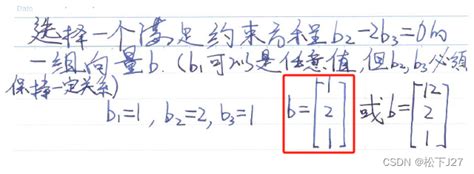 选择一个满足约束方程b₂-2b₃=0的
一组向量b. (b₁可以是任意值,但b₂,b₃必须
保持一定关系)
b₁=1, b₂=2, b₃=1 b=[1 2 1] 或 b=[12 2 1]
CSDN @松下J27